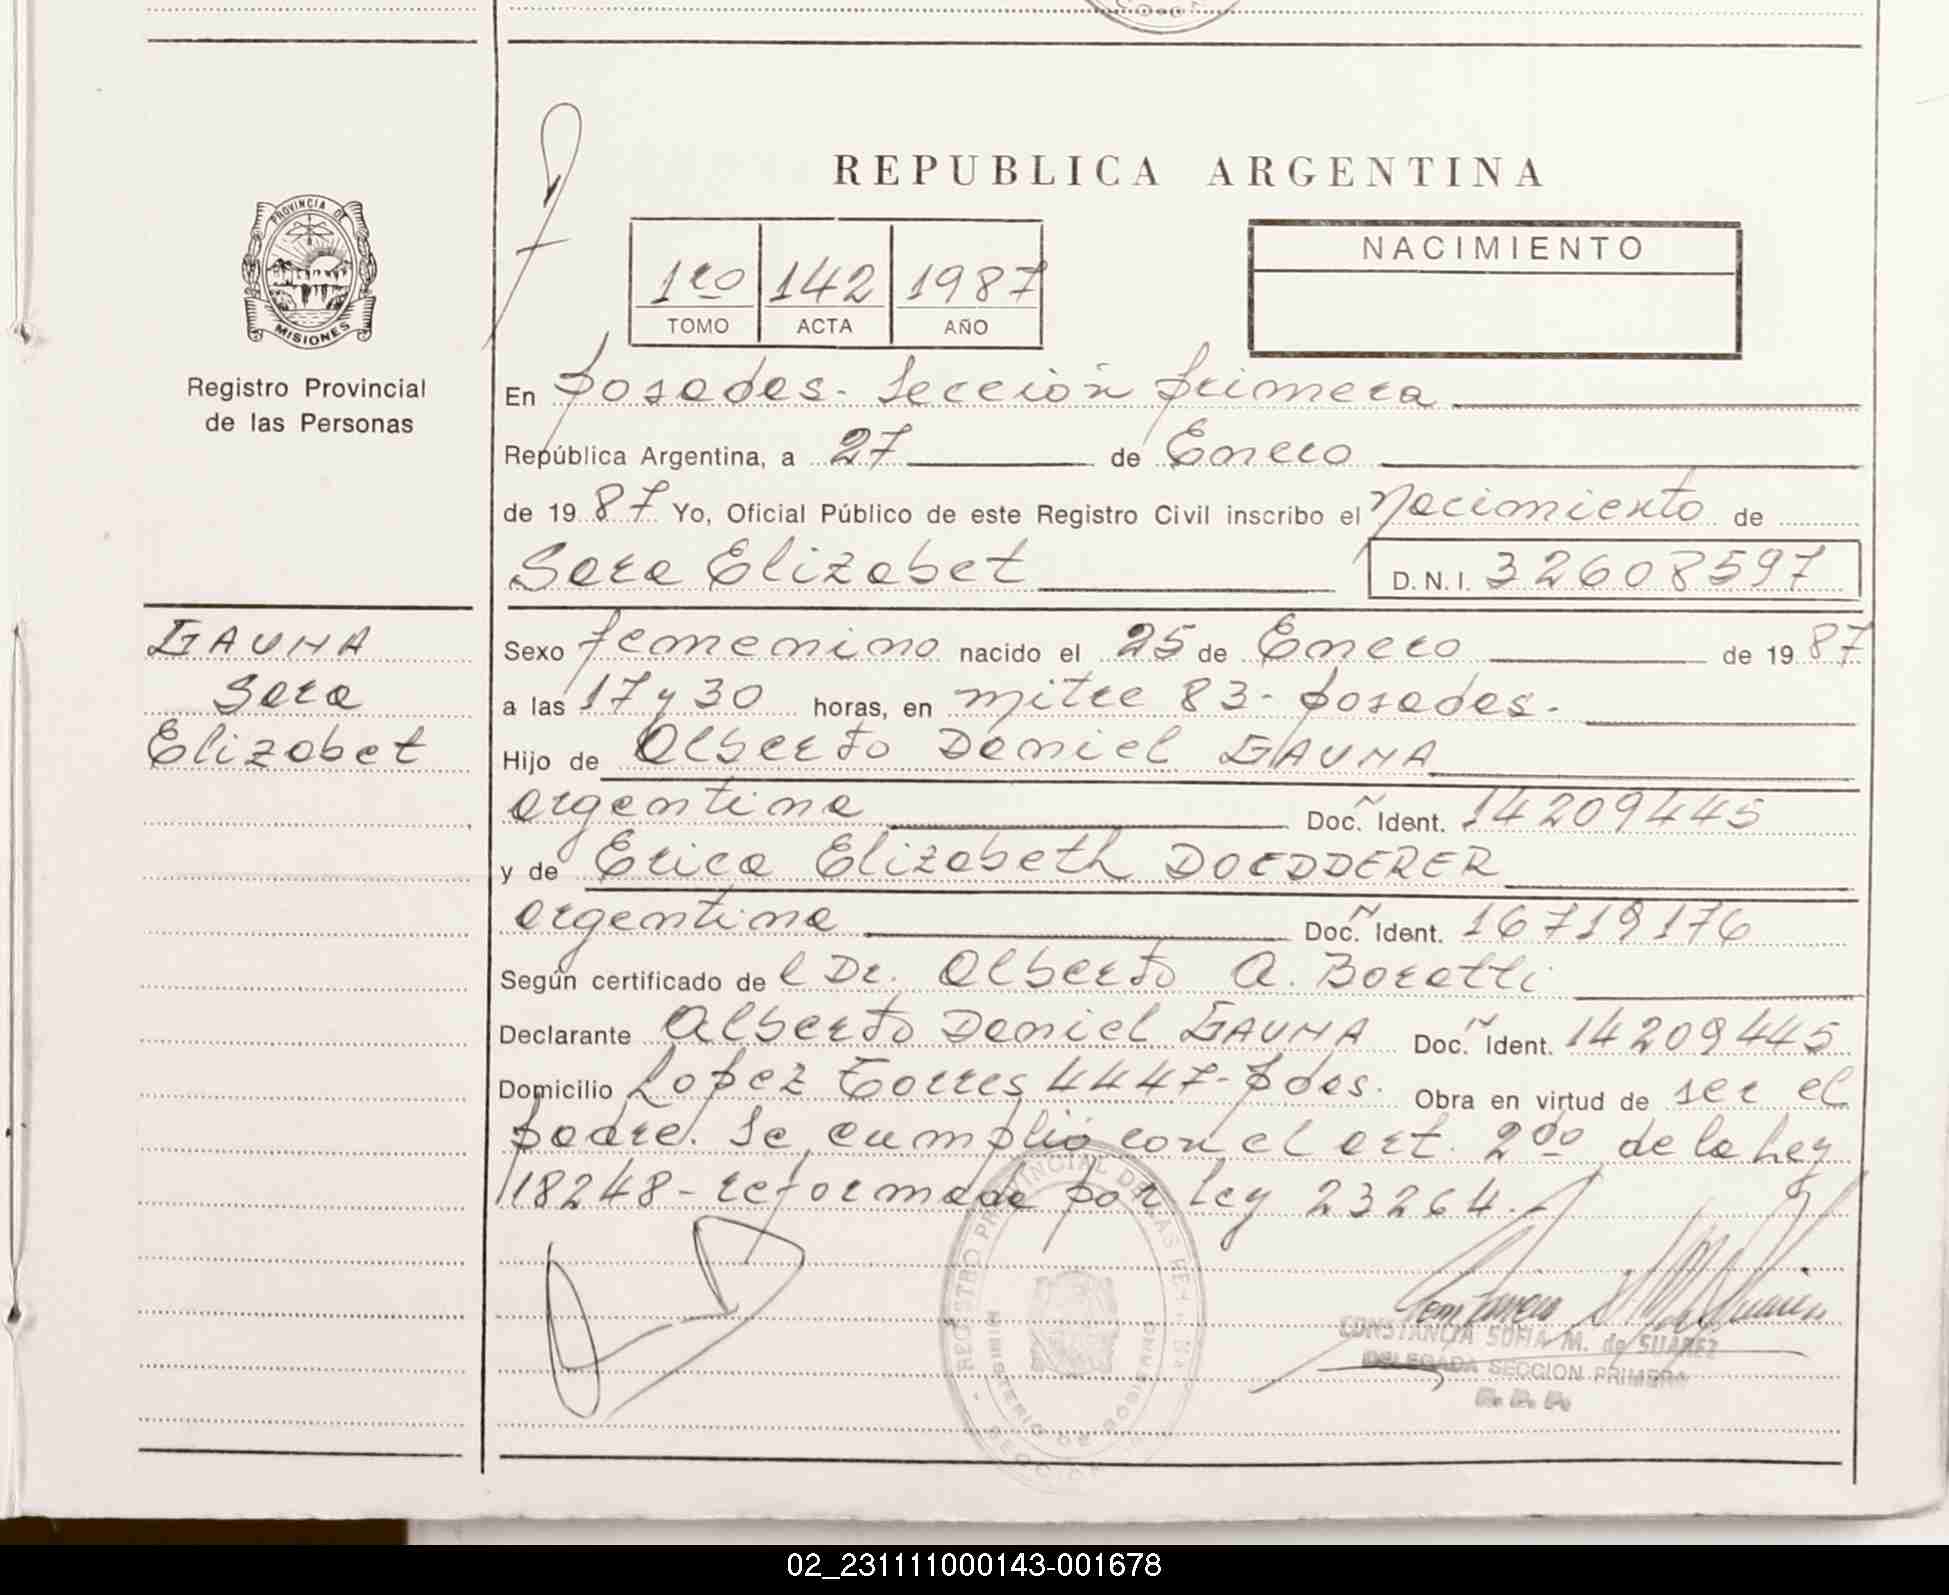 REPUBLICA ARGENTINA
PROVINCIA DE
MISIONES
Registro Provincial
de las Personas
1ro 142 1987
TOMO ACTA AÑO
NACIMIENTO
En Posadas - Sección Primera
República Argentina, a 27 de Enero
de 1987 Yo, Oficial Público de este Registro Civil inscribo el Nacimiento de
Sara Elizabet D.N.I. 32608597
GAUNA
Sara
Elizabet
Sexo femenino nacido el 25 de Enero de 1987
a las 17 y 30 horas, en Mitre 83 - Posadas.
Hijo de Alberto Daniel GAUNA
argentina Doc. Ident. 14209445
y de Erica Elizabeth DOEDDERER
argentina Doc. Ident. 16719176
Según certificado del Dr. Alberto A. Boratti
Declarante Alberto Daniel GAUNA Doc. Ident. 14209445
Domicilio Lopez Torres 4447 - Pdas. Obra en virtud de ser el
padre. Se cumplió con el art. 2do de la Ley
18248 - reformada por ley 23264.
CONSTANCIA SOFIA M. de SUAREZ
DELEGADA SECCION PRIMERA
R. P. P.
02_231111000143-001678